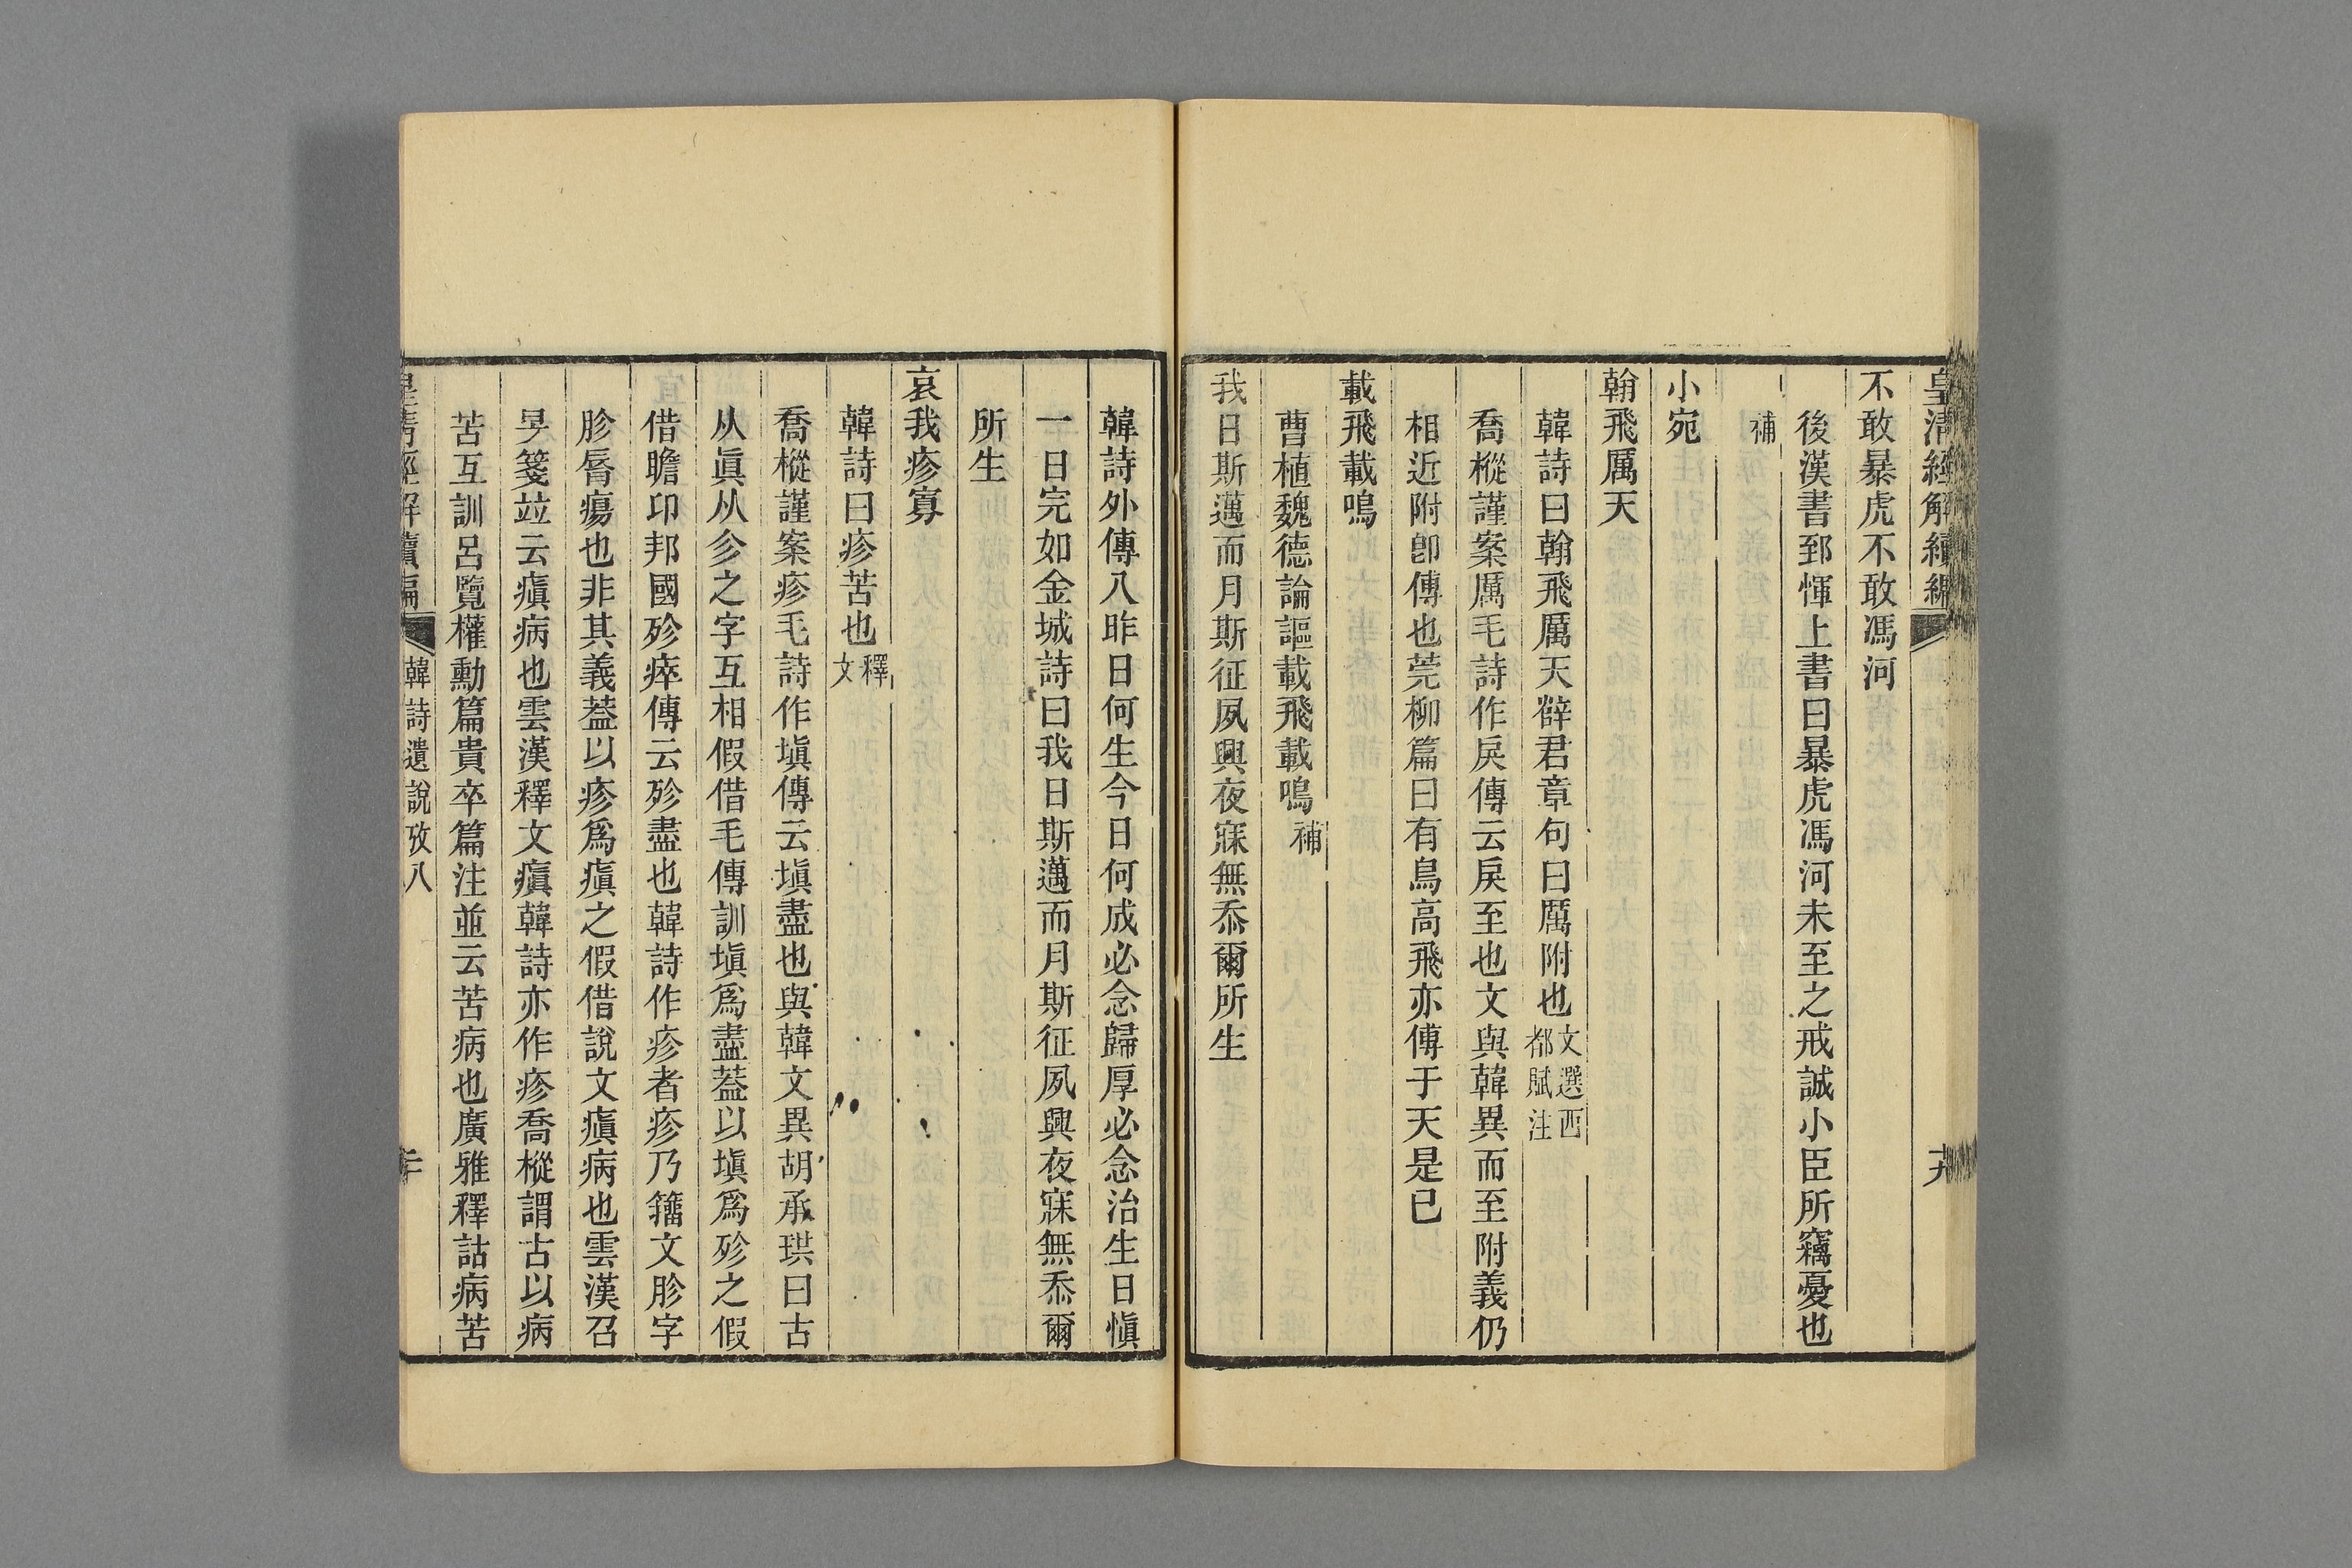 皇清經解續編
不敢暴虎不敢馮河
後漢書郅惲上書曰暴虎馮河未至之戒誠小臣所竊憂也
補
小宛
翰飛厲天
韓詩曰翰飛厲天薛君章句曰厲附也文選西都賦注
喬樅謹案厲毛詩作戾傳云戾至也文與韓異而至附義仍
相近附卽傅也菀柳篇曰有鳥高飛亦傅于天是已
載飛載鳴
曹植魏德論謳載飛載鳴補
我日斯邁而月斯征夙興夜寐無忝爾所生
韓詩外傳八昨日何生今日何成必念歸厚必念治生日愼
一日完如金城詩曰我日斯邁而月斯征夙興夜寐無忝爾
所生
哀我疹寡
韓詩曰疹苦也釋文
喬樅謹案疹毛詩作塡傳云塡盡也與韓文異胡承珙曰古
从眞从㐱之字互相假借毛傳訓塡爲盡葢以塡爲殄之假
借瞻卬邦國殄瘁傳云殄盡也韓詩作疹者疹乃籒文胗字
胗脣瘍也非其義葢以疹爲瘨之假借說文瘨病也雲漢召
旻箋竝云瘨病也雲漢釋文瘨韓詩亦作疹喬樅謂古以病
苦互訓呂覽權勳篇貴卒篇注並云苦病也廣雅釋詁病苦
皇清經解續編 韓詩遺說攷八